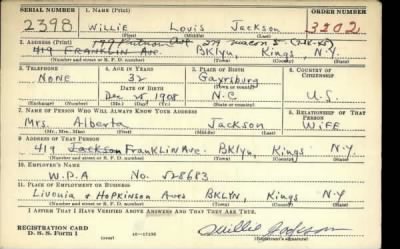 SERIAL NUMBER 1. NAME (Print) ORDER NUMBER
2398 Willie Louis Jackson 3202
(First) (Middle) (Last)
2. ADDRESS (Print)
419 FRANKLIN Ave. BKlyn Kings, N.Y.
(Number and street or R. F. D. number) (Town) (County) (State)
3. TELEPHONE 4. AGE IN YEARS 5. PLACE OF BIRTH 6. COUNTRY OF CITIZENSHIP
NONE 32 Gaysburg
DATE OF BIRTH (Town or county)
Dec 25 1908 N.C. U.S.
(Exchange) (Number) (Mo.) (Day) (Yr.) (State or country)
7. NAME OF PERSON WHO WILL ALWAYS KNOW YOUR ADDRESS 8. RELATIONSHIP OF THAT PERSON
Mrs. Alberta Jackson WiFE
(Mr., Mrs., Miss) (First) (Middle) (Last)
9. ADDRESS OF THAT PERSON
419 Jackson FranKLin Ave. BKlyn, Kings N.Y.
(Number and street or R. F. D. number) (Town) (County) (State)
10. EMPLOYER'S NAME
W.P.A No. 528683
11. PLACE OF EMPLOYMENT OR BUSINESS
Livonia & HopKinson Aves BKLYN, Kings N.Y
(Number and street or R. F. D. number) (Town) (County) (State)
I AFFIRM THAT I HAVE VERIFIED ABOVE ANSWERS AND THAT THEY ARE TRUE.
REGISTRATION CARD
D. S. S. Form 1 (over) Willie Jackson
(Registrant's signature)